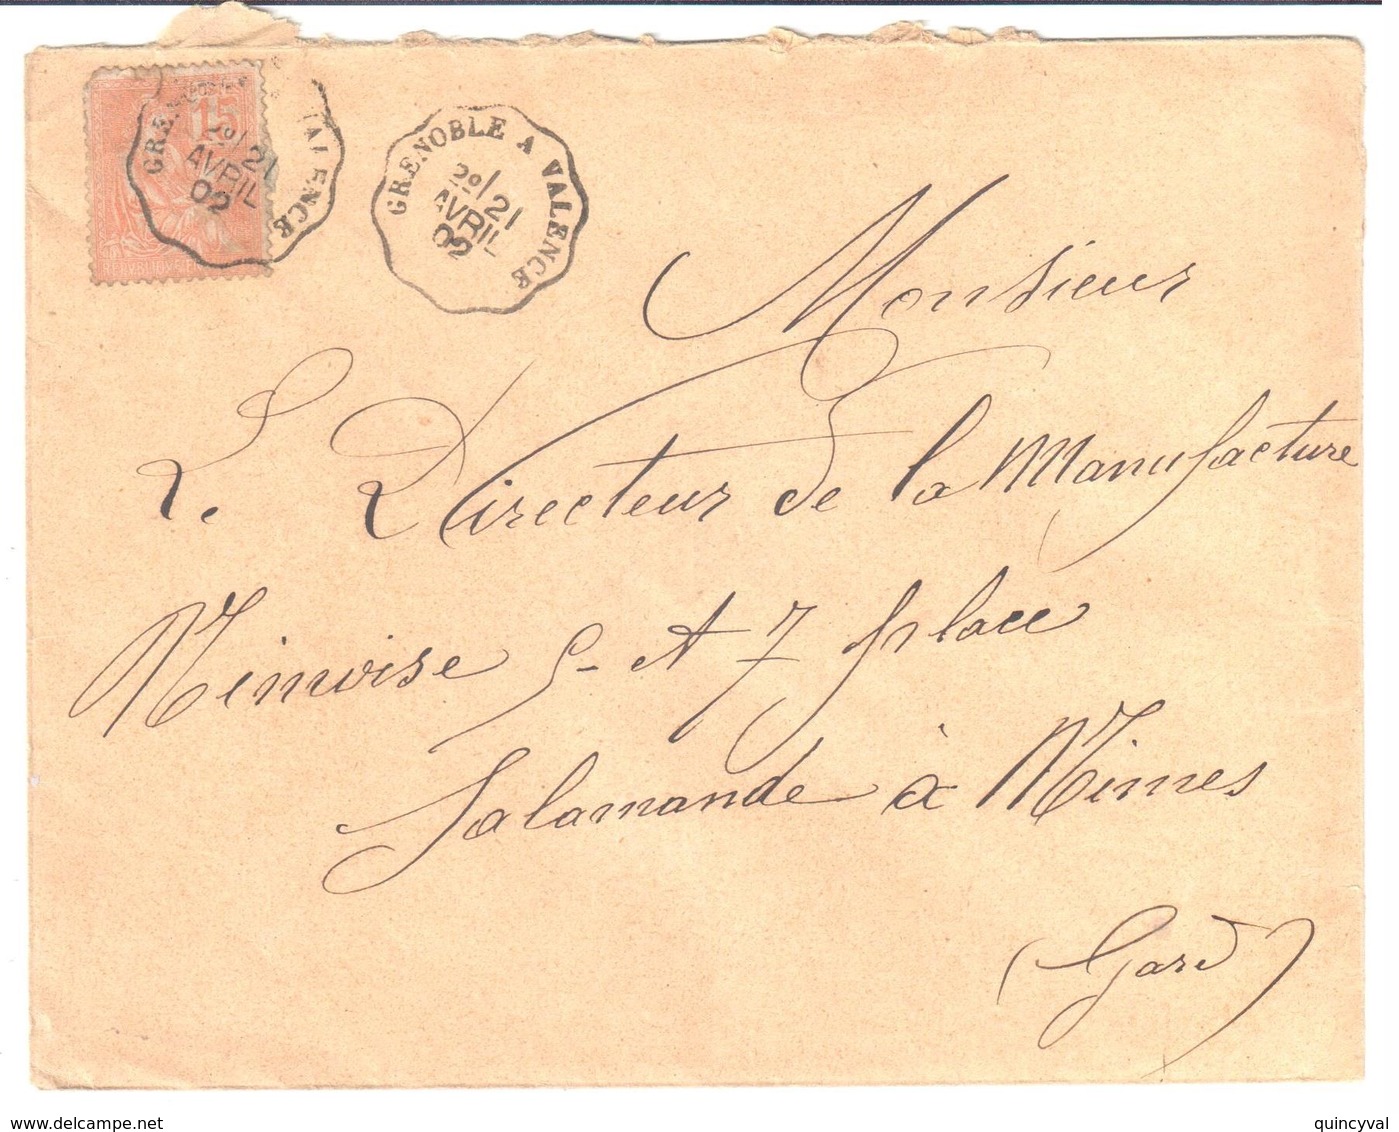 15
GRENOBLE A VALENCE
2º/ 21
AVRIL
02
GRENOBLE A VALENCE
2º/ 21
AVRIL
02
Monsieur
Le Directeur de la Manufacture
Nimoise 5 et 7 place
Salamande à Nimes
(Gard)
delcampe.net
quincyval